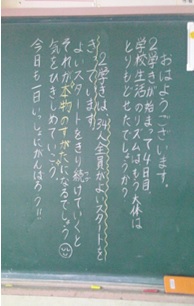 おはようございます。
2学きが始まって4日目。
学校生活のリズムはもう大体は
とりもどせたでしょうか?
2学きは34人全員がよいスタートを
きっています。
よいスタートをきり続けていくと
それが本物のすがたになるでしょう。
気をひきしめていこう。
今日も一日いっしょにがんばろう!!